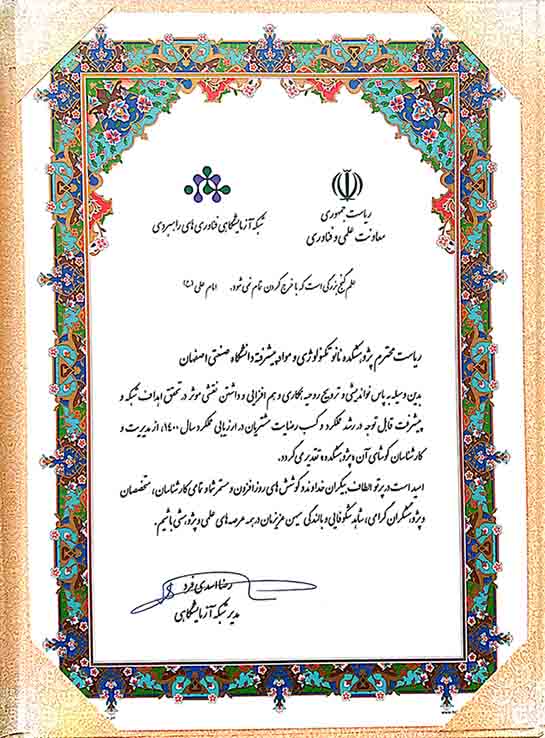 ریاست جمهوری
معاونت علمی و فناوری
شبکه آزمایشگاهی فناوری‌های راهبردی
علم گنج بزرگی است که با خرج کردن تمام نمی‌شود. امام علی (ع)
ریاست محترم پژوهشکده نانوتکنولوژی و مواد پیشرفته دانشگاه صنعتی اصفهان
بدین وسیله به پاس نواندیشی و ترویج روحیه همکاری و هم افزایی و داشتن نقشی موثر در تحقق اهداف شبکه و
پیشرفت قابل توجه در رشد عملکرد و کسب رضایت مشتریان در ارزیابی عملکرد سال ۱۴۰۰، از مدیریت و
کارشناسان کوشای آن پژوهشکده تقدیر می‌گردد.
امید است در پرتو الطاف بیکران خداوند و کوشش‌های روزافزون و مستمر شما و تمامی کارشناسان، متخصصان
و پژوهشگران گرامی، شاهد شکوفایی و بالندگی میهن عزیزمان در همه عرصه‌های علمی و پژوهشی باشیم.
رضا اسدی فرد
مدیر شبکه آزمایشگاهی